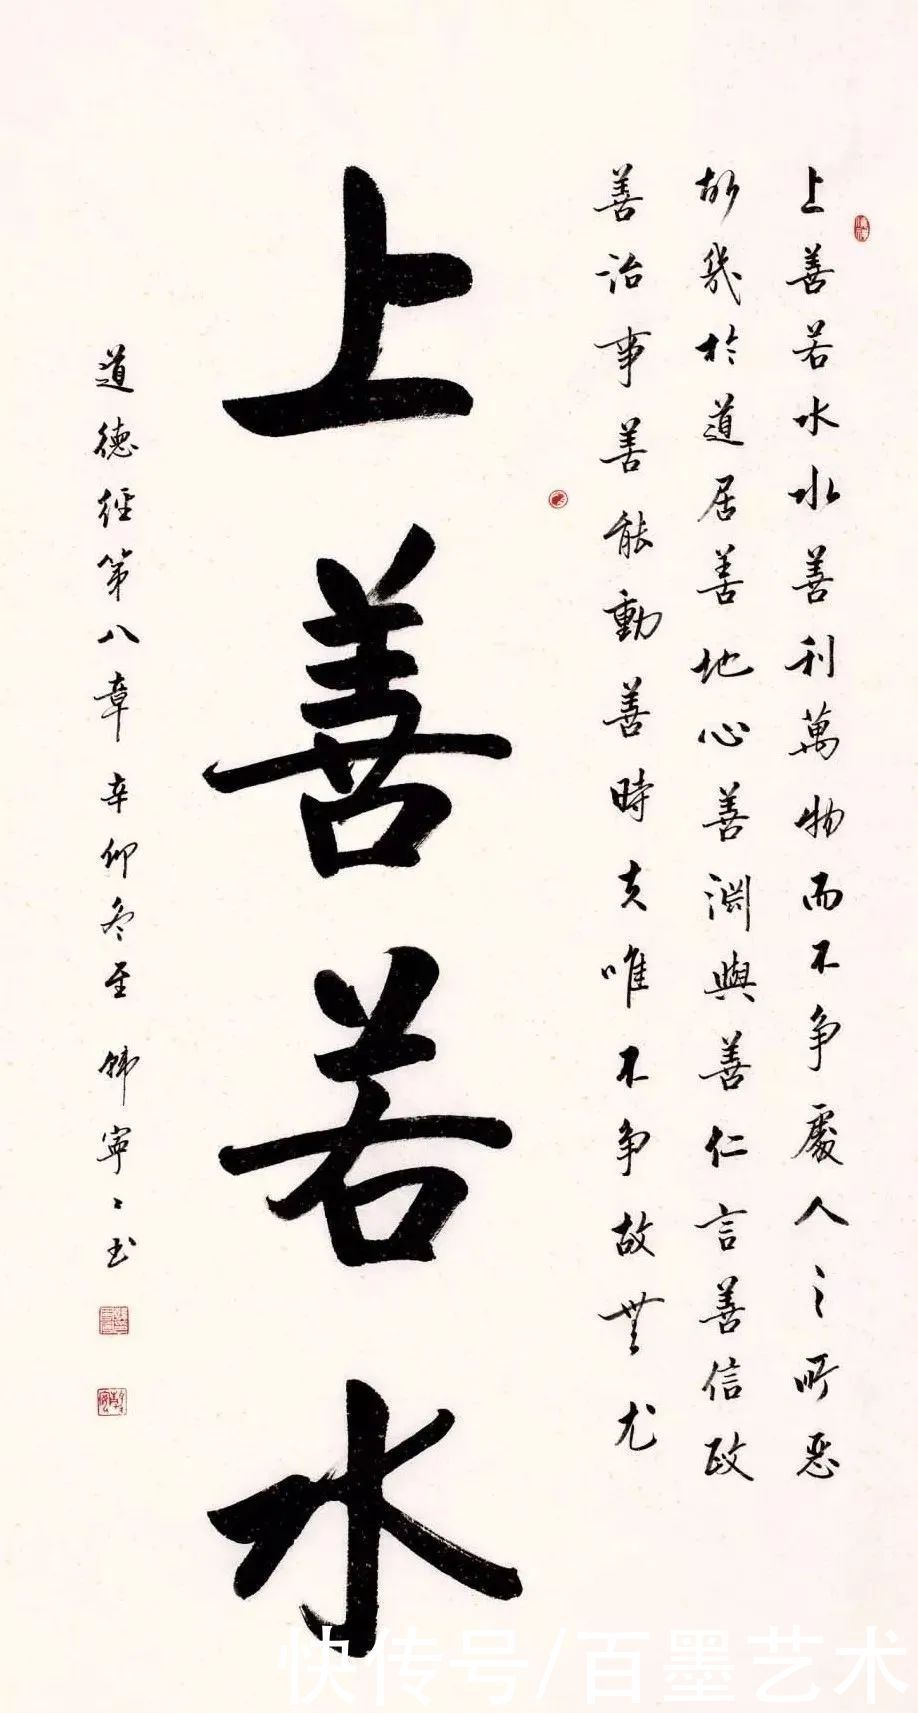 上善若水水善利萬物而不争處人之所惡
故幾於道居善地心善淵與善仁言善信政
善治事善能動善時夫唯不争故無尤
上善若水
道德經第八章 辛卯冬至 韩寧寧书
快传号/百墨艺术